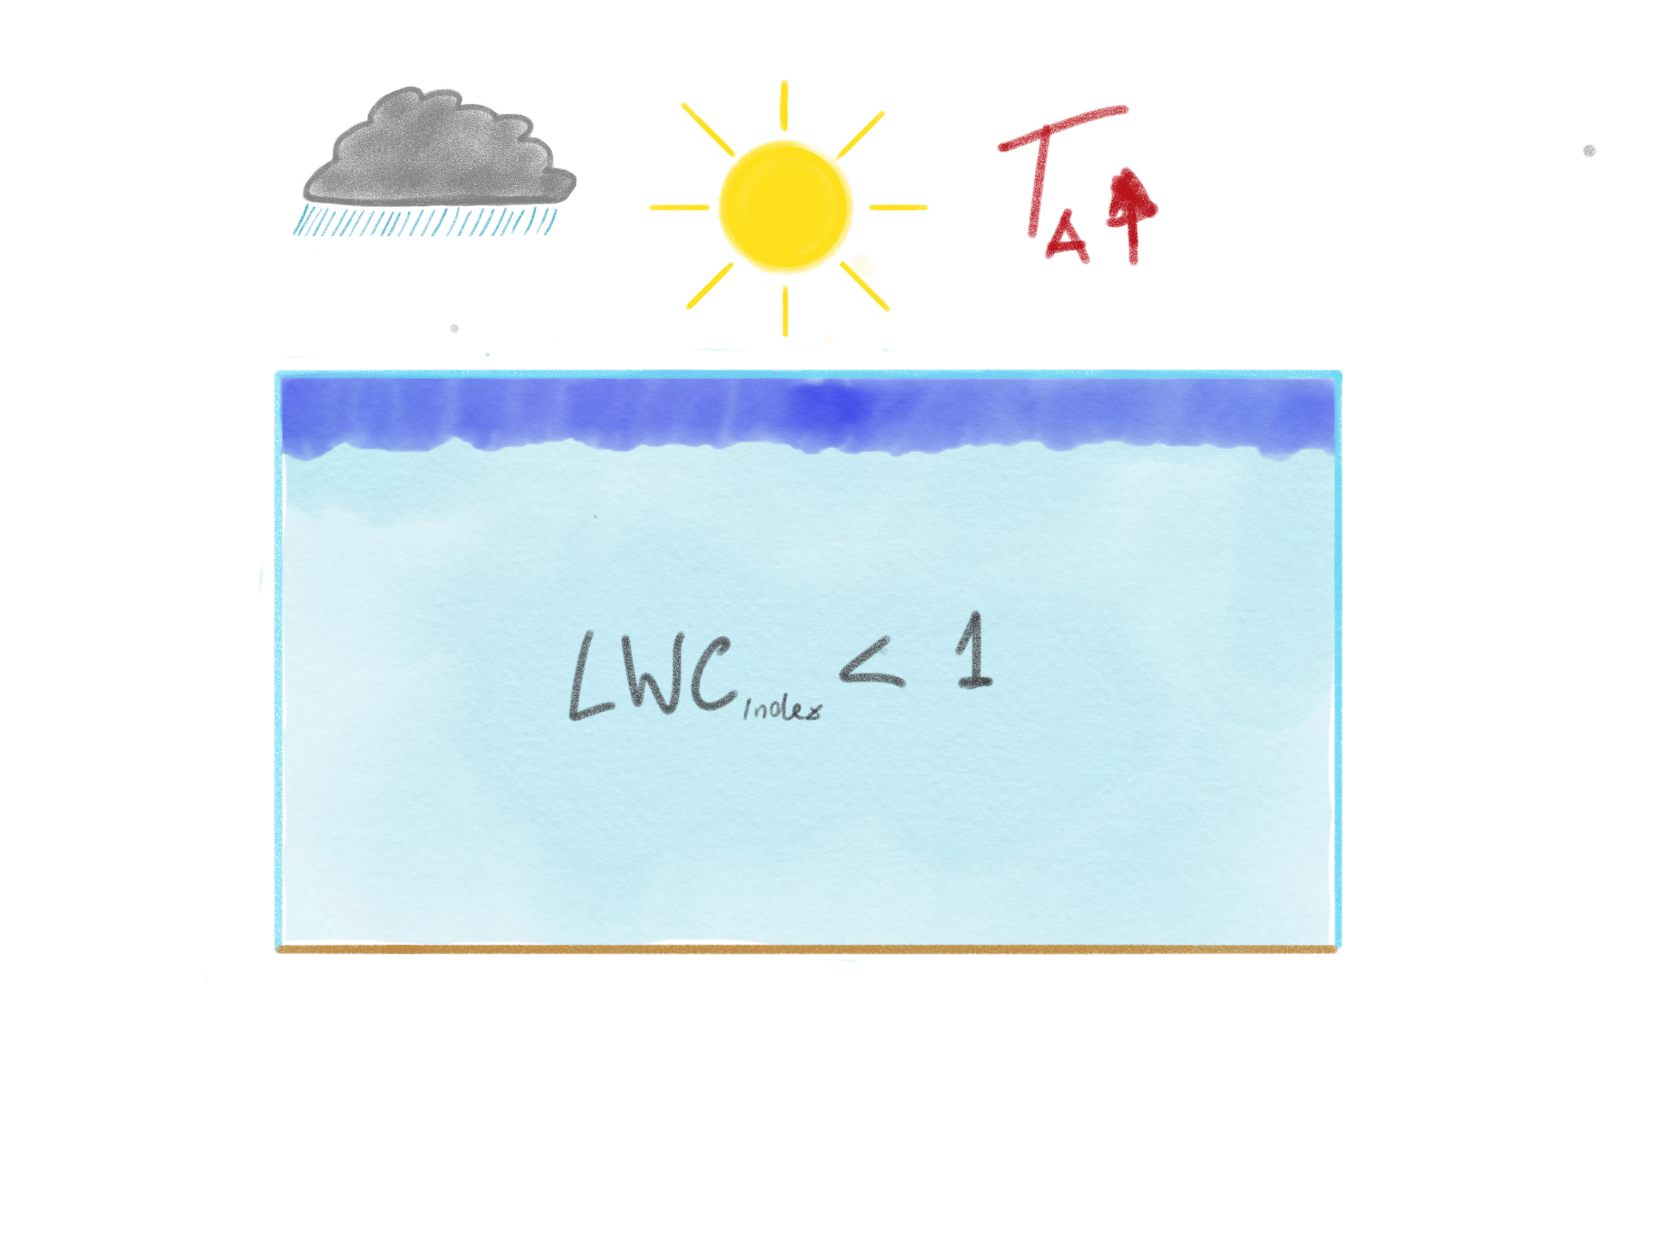 TA↑
LWCindex < 1